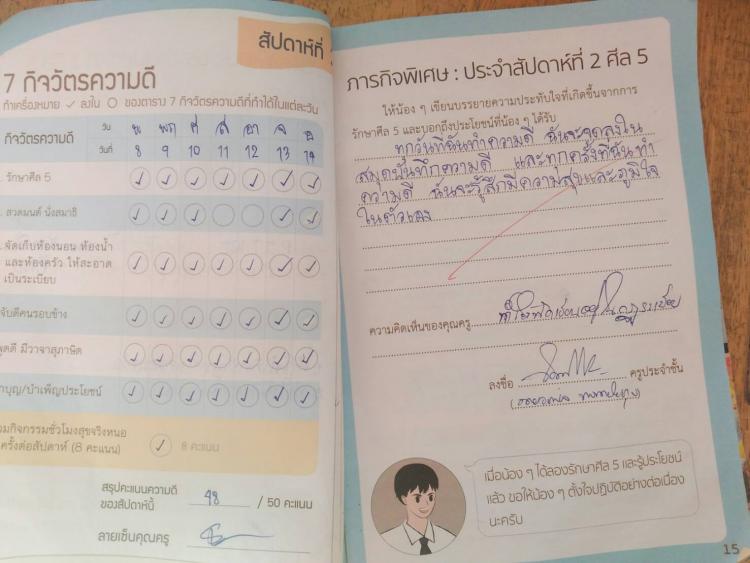 สัปดาห์ที่
7 กิจวัตรความดี
ทำเครื่องหมาย ✓ ลงใน ○ ของตาราง 7 กิจวัตรความดีที่ทำได้ในแต่ละวัน
กิจวัตรความดี
วัน พ พฤ ศ ส อา จ อ
วันที่ 8 9 10 11 12 13 14
รักษาศีล 5
สวดมนต์ นั่งสมาธิ
จัดเก็บห้องนอน ห้องน้ำ
และห้องครัว ให้สะอาด
เป็นระเบียบ
จับดีคนรอบข้าง
พูดดี มีวาจาสุภาษิต
ทำบุญ/บำเพ็ญประโยชน์
ร่วมกิจกรรมชั่วโมงสุขจริงหนอ
ครั้งต่อสัปดาห์ (8 คะแนน) 8 คะแนน
สรุปคะแนนความดี
ของสัปดาห์นี้ 48 / 50 คะแนน
ลายเซ็นคุณครู
ภารกิจพิเศษ : ประจำสัปดาห์ที่ 2 ศีล 5
ให้น้อง ๆ เขียนบรรยายความประทับใจที่เกิดขึ้นจากการ
รักษาศีล 5 และบอกถึงประโยชน์ที่น้อง ๆ ได้รับ
ทุกวันที่ฉันทำความดี ฉันจะจดลงใน
สมุดบันทึกความดี และทุกครั้งที่ฉันทำ
ความดี ฉันจะรู้สึกมีความสุขและภูมิใจ
ในตัวเอง
ความคิดเห็นของคุณครู
ลงชื่อ ครูประจำชั้น
เมื่อน้อง ๆ ได้ลองรักษาศีล 5 และรู้ประโยชน์
แล้ว ขอให้น้อง ๆ ตั้งใจปฏิบัติอย่างต่อเนื่อง
นะครับ
15